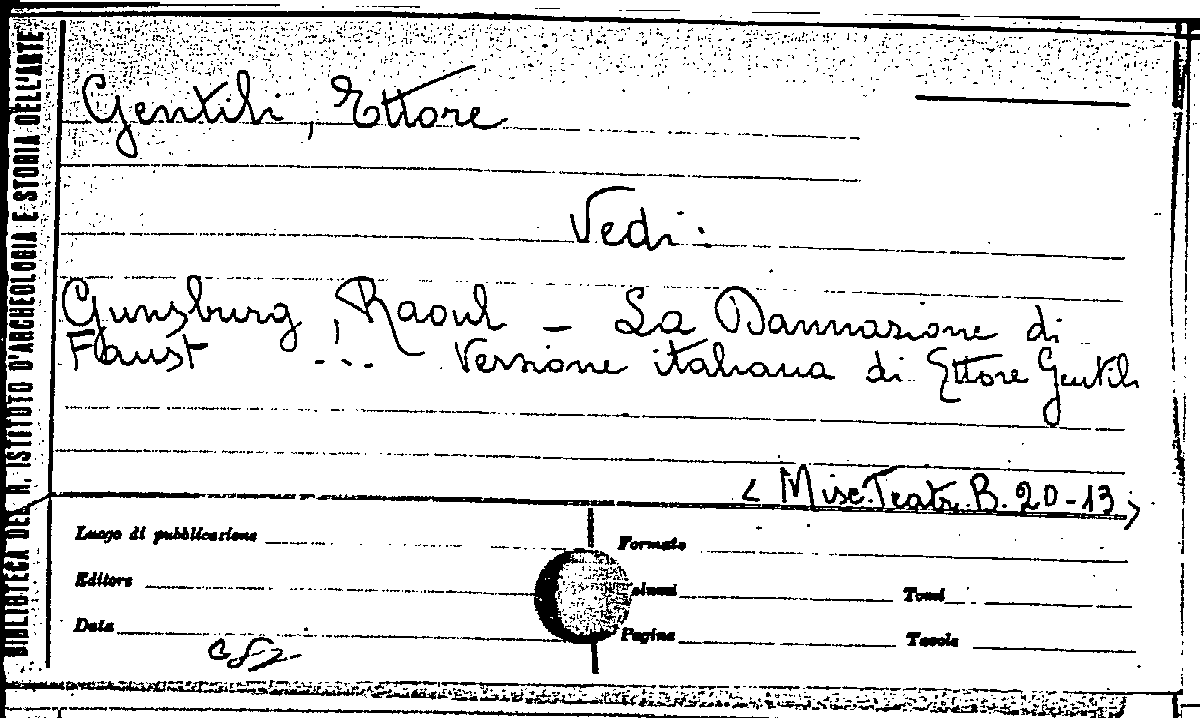 BIBLIOTECA DEL R. ISTITUTO D'ARCHEOLOGIA E STORIA DELL'ARTE
Gentili, Ettore
Vedi:
Gunsburg, Raoul - La Dannazione di
Faust ... Versione italiana di Ettore Gentili
< Misc. Teatr. B. 20-13 >
Luogo di pubblicazione
Formato
Editore
Tomi
Data
Pagine
Tavole